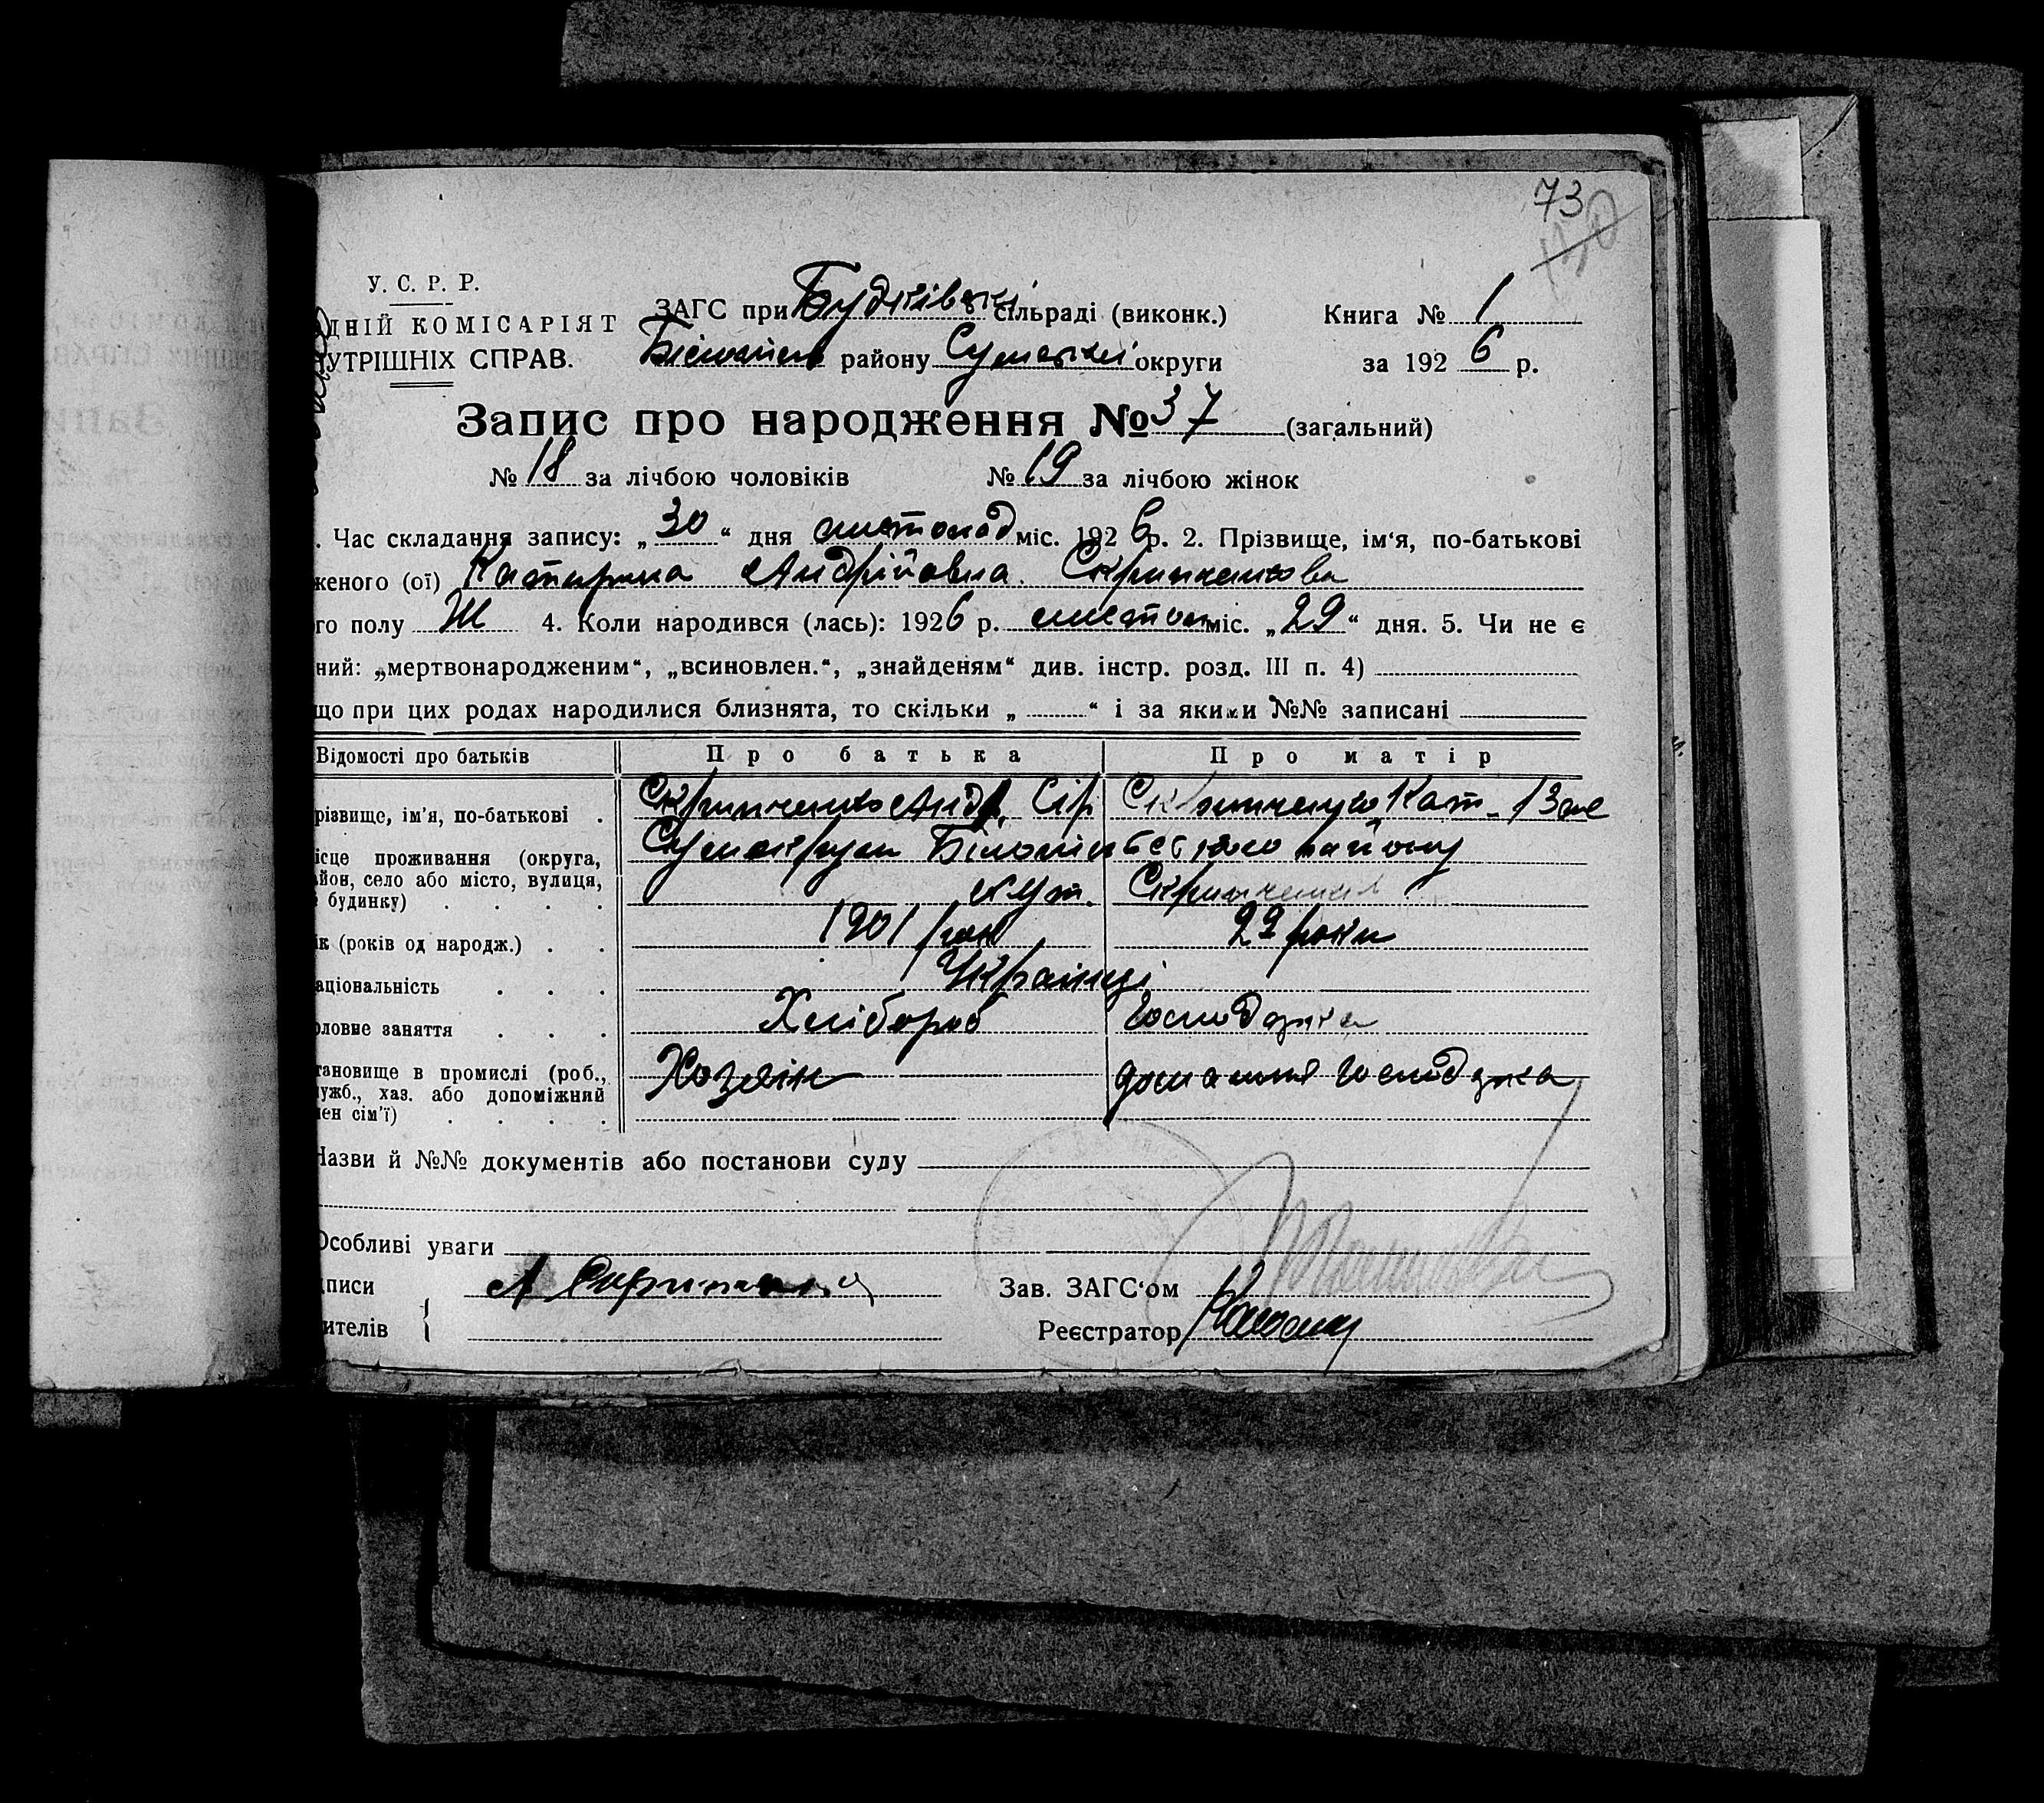 73
У. С. Р. Р.
ДНІЙ КОМІСАРІЯТ
УТРІШНІХ СПРАВ.
ЗАГС при Будківські сільраді (виконк.)
району Сумської округи
Книга № 1
за 1926 р.
Запис про народження № 37 (загальний)
№ 18 за лічбою чоловіків № 19 за лічбою жінок
. Час складання запису: „30“ дня листопад міс. 1926 р. 2. Прізвище, ім‘я, по-батькові
женого (ої) Катирина Андрійовна Скрипченкова
го полу Ж 4. Коли народився (лась): 1926 р. листоп міс. „29“ дня. 5. Чи не є
ний: „мертвонародженим“, „всиновлен.“, „знайденям“ див. інстр. розд. III п. 4)
що при цих родах народилися близнята, то скільки „ “ і за якими №№ записані
Відомості про батьків Про батька Про матір
різвище, ім’я, по-батькові . Скрипченко Анд. Сір Скрипченко Кат.
ісце проживання (округа,
йон, село або місто, вулиця, району
будинку) . . . . хут. Скрипченків
ік (років од народж.) . . 1901 рок 22 роки
аціональність . . . Українці
оловне заняття . . . Хлібороб Господарка
тановище в промислі (роб.,
ужб., хаз. або допоміжний Хозяїн домашня господарка
лен сім’ї) . . . .
Назви й №№ документів або постанови суду
Особливі уваги
писи А Скрипченко Зав. ЗАГС‘ом
ителів Реєстратор